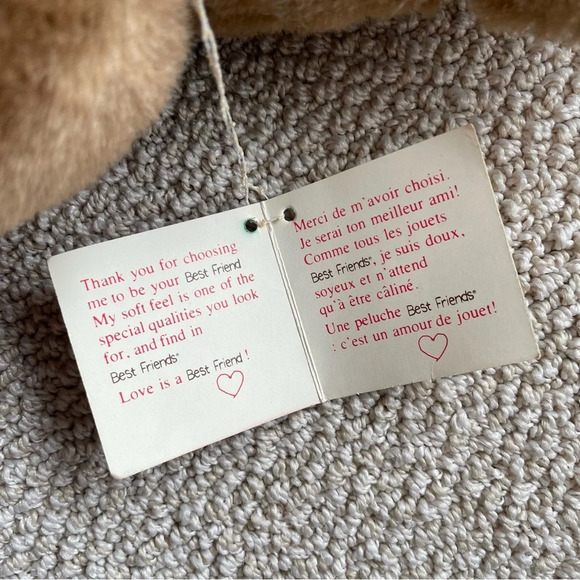 Thank you for choosing
me to be your Best Friend
My soft feel is one of the
special qualities you look
for, and find in
Best Friends®
Love is a Best Friend!
Merci de m'avoir choisi.
Je serai ton meilleur ami!
Comme tous les jouets
Best Friends®, je suis doux,
soyeux et n'attend
qu'à être câliné.
Une peluche Best Friends®
: c'est un amour de jouet!